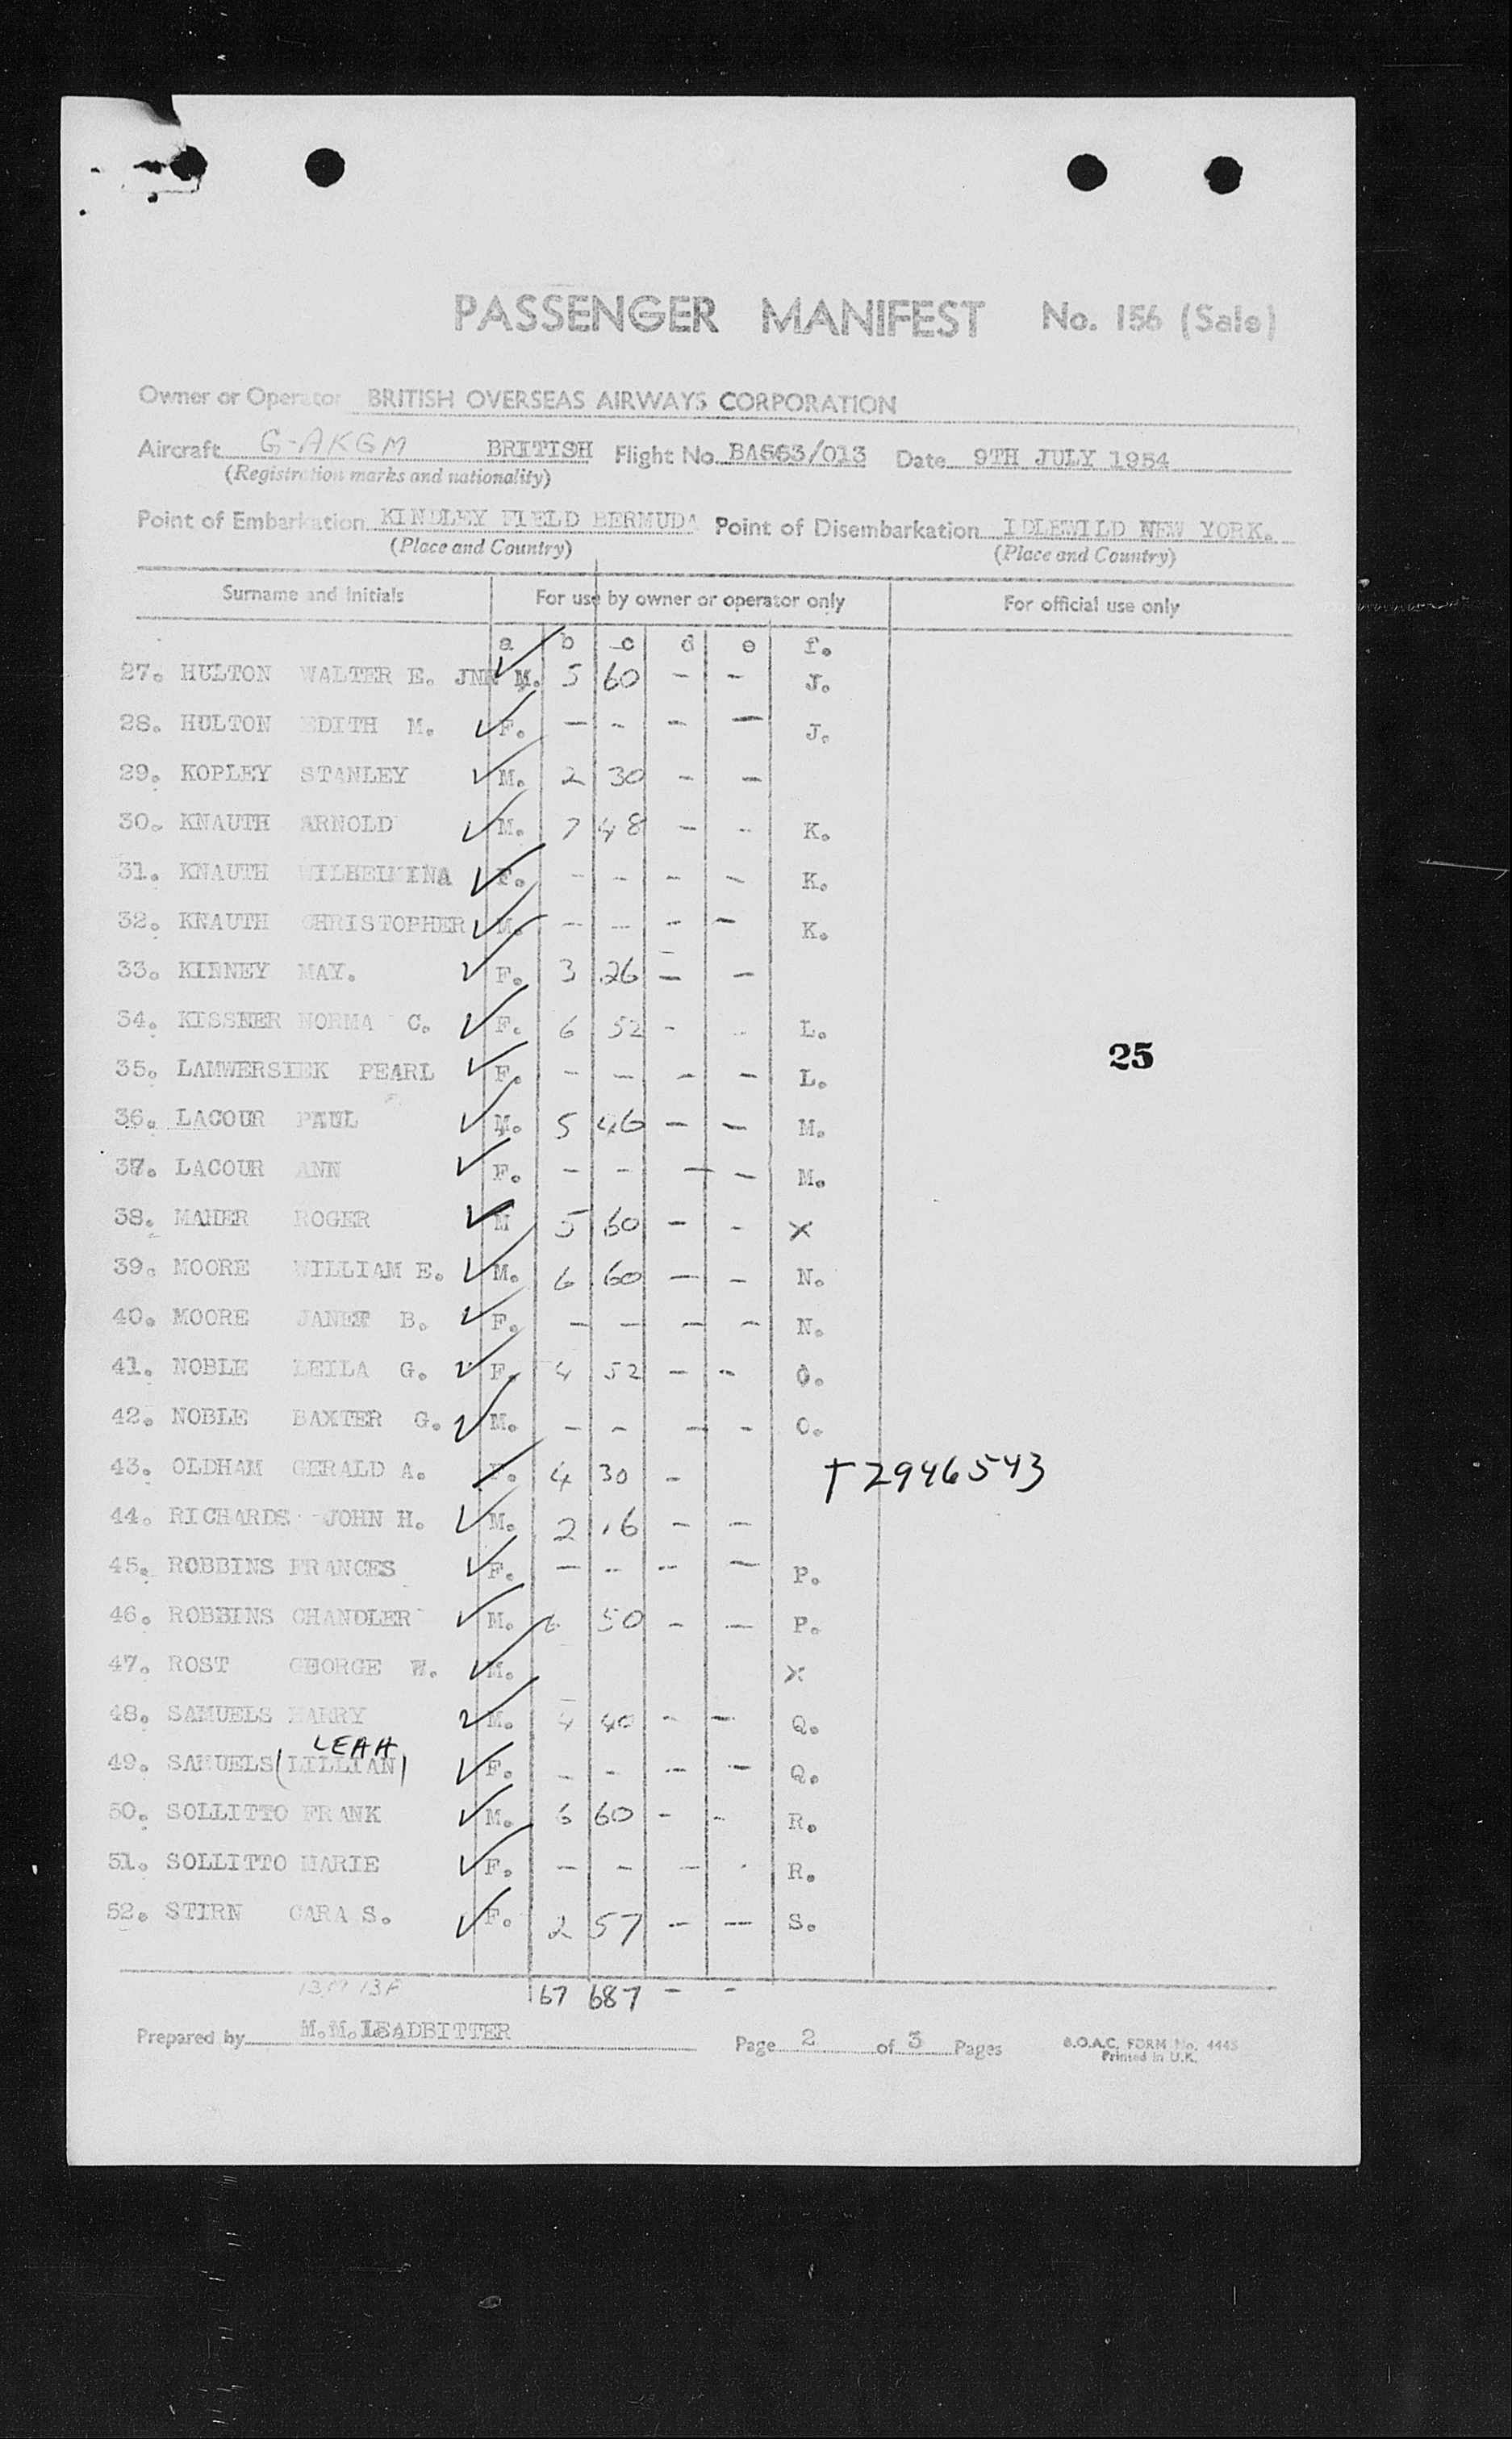 PASSENGER MANIFEST No. 156 (Sale)
Owner or Operator BRITISH OVERSEAS AIRWAYS CORPORATION
Aircraft G-AKGM BRITISH Flight No. BA663/013 Date 9TH JULY 1954
(Registration marks and nationality)
Point of Embarkation KINDLEY FIELD BERMUDA Point of Disembarkation IDLEWILD NEW YORK.
(Place and Country) (Place and Country)
Surname and Initials For use by owner or operator only For official use only
a b c d e f.
27. HULTON WALTER E. JNR M. 5 60 - - J.
28. HULTON EDITH M. F. - - - - J.
29. KOPLEY STANLEY M. 2 30 - -
30. KNAUTH ARNOLD M. 7 48 - - K.
31. KNAUTH WILHELMINA F. - - - - K.
32. KNAUTH CHRISTOPHER M. - - - - K.
33. KINNEY MAY. F. 3 26 - -
34. KISSNER NORMA C. F. 6 52 - - L.
35. LAMWERSIEK PEARL F. - - - - L.
25
36. LACOUR PAUL M. 5 46 - - M.
37. LACOUR ANN F. - - - - M.
38. MAHER ROGER M 5 60 - - X
39. MOORE WILLIAM E. M. 6 60 - - N.
40. MOORE JANET B. F. - - - - N.
41. NOBLE LEILA G. F. 4 52 - - O.
42. NOBLE BAXTER G. M. - - - - O.
43. OLDHAM GERALD A. F. 4 30 - T2946543
44. RICHARDS JOHN H. M. 2 16 - -
45. ROBBINS FRANCES F. - - - - P.
46. ROBBINS CHANDLER M. 6 50 - - P.
47. ROST GEORGE W. M. X
48. SAMUELS HARRY M. 4 40 - - Q.
LEAH
49. SAMUELS (LILLIAN) F. - - - - Q.
50. SOLLITTO FRANK M. 6 60 - - R.
51. SOLLITTO MARIE F. - - - - R.
52. STIRN CARA S. F. 2 57 - - S.
13M 13F 67 687 - -
Prepared by M.M.LEADBITTER Page 2 of 3 Pages B.O.A.C. FORM No. 4445
Printed in U.K.